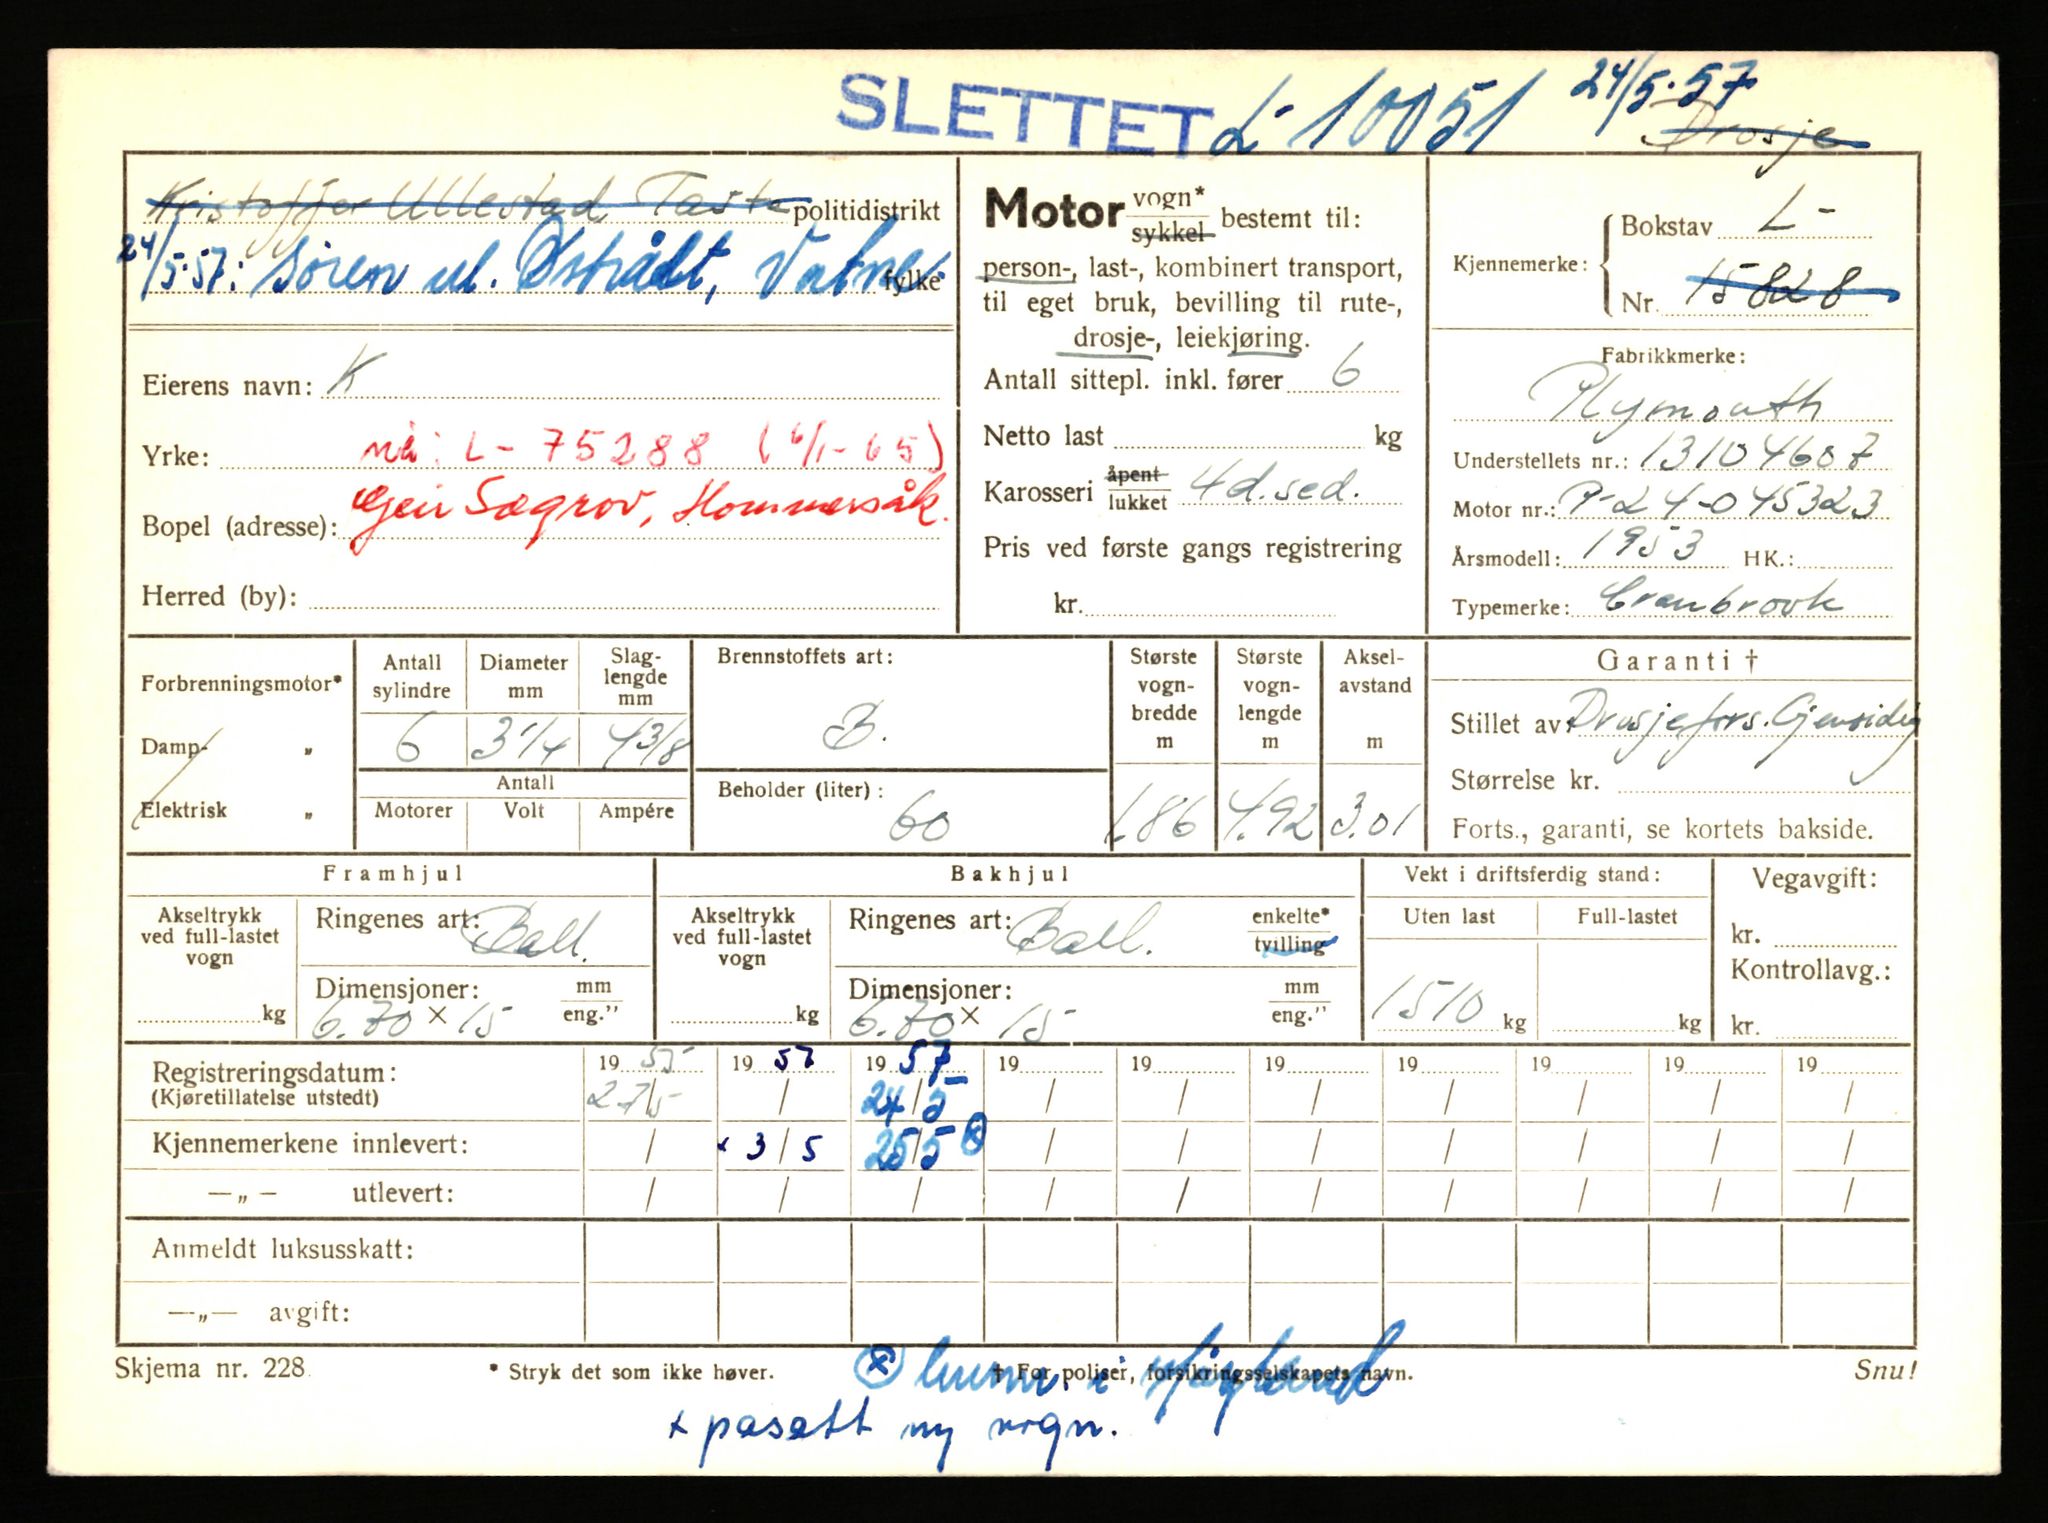 SLETTET L-10051 24/5-57
Drosje
Kristoffer Ullestad, Tasta politidistrikt
24/5-57: Søren M. Østrådt, Vatne fylke
Eierens navn: K
Yrke: nå: L-75288 (6/1-65)
Bopel (adresse): Geir Sægrov, Hommersåk.
Herred (by):
Motor vogn* sykkel bestemt til:
person-, last-, kombinert transport,
til eget bruk, bevilling til rute-,
drosje-, leiekjøring.
Antall sittepl. inkl. fører 6
Netto last kg
Karosseri åpent lukket 4d.sed.
Pris ved første gangs registrering
kr.
Kjennemerke: Bokstav L-
Nr. 15828
Fabrikkmerke:
Plymouth
Understellets nr.: 13104607
Motor nr.: P-24-045323
Årsmodell: 1953 HK.:
Typemerke: Cranbrook
Forbrenningsmotor*
Damp- „
Elektrisk „
Antall sylindre Diameter mm Slag-lengde mm
6 3 1/4 4 3/8
Antall
Motorer Volt Ampére
Brennstoffets art:
B.
Beholder (liter):
60
Største vogn-bredde m
1.86
Største vogn-lengde m
4.92
Aksel-avstand m
3.01
Garanti †
Stillet av Drosjefors. Gjensidig
Størrelse kr.
Forts., garanti, se kortets bakside.
Framhjul
Akseltrykk ved full-lastet vogn
kg
Ringenes art: Ball.
Dimensjoner: mm eng.”
6.70 × 15
Bakhjul
Akseltrykk ved full-lastet vogn
kg
Ringenes art: Ball. enkelte* tvilling
Dimensjoner: mm eng.”
6.70 × 15
Vekt i driftsferdig stand:
Uten last Full-lastet
1510 kg kg
Vegavgift:
kr.
Kontrollavg.:
kr.
Registreringsdatum: 19 55 19 57 19 57 19 19 19 19 19 19 19
(Kjøretillatelse utstedt) 27/5 / 24/5 / / / / / / /
Kjennemerkene innlevert: / x 3/5 25/5 ⊗ / / / / / / /
—„— utlevert: / / / / / / / / / /
Anmeldt luksusskatt:
—„— avgift:
Skjema nr. 228. * Stryk det som ikke høver. † For poliser, forsikringsselskapets navn. Snu!
⊗ i
x påsatt ny vogn.